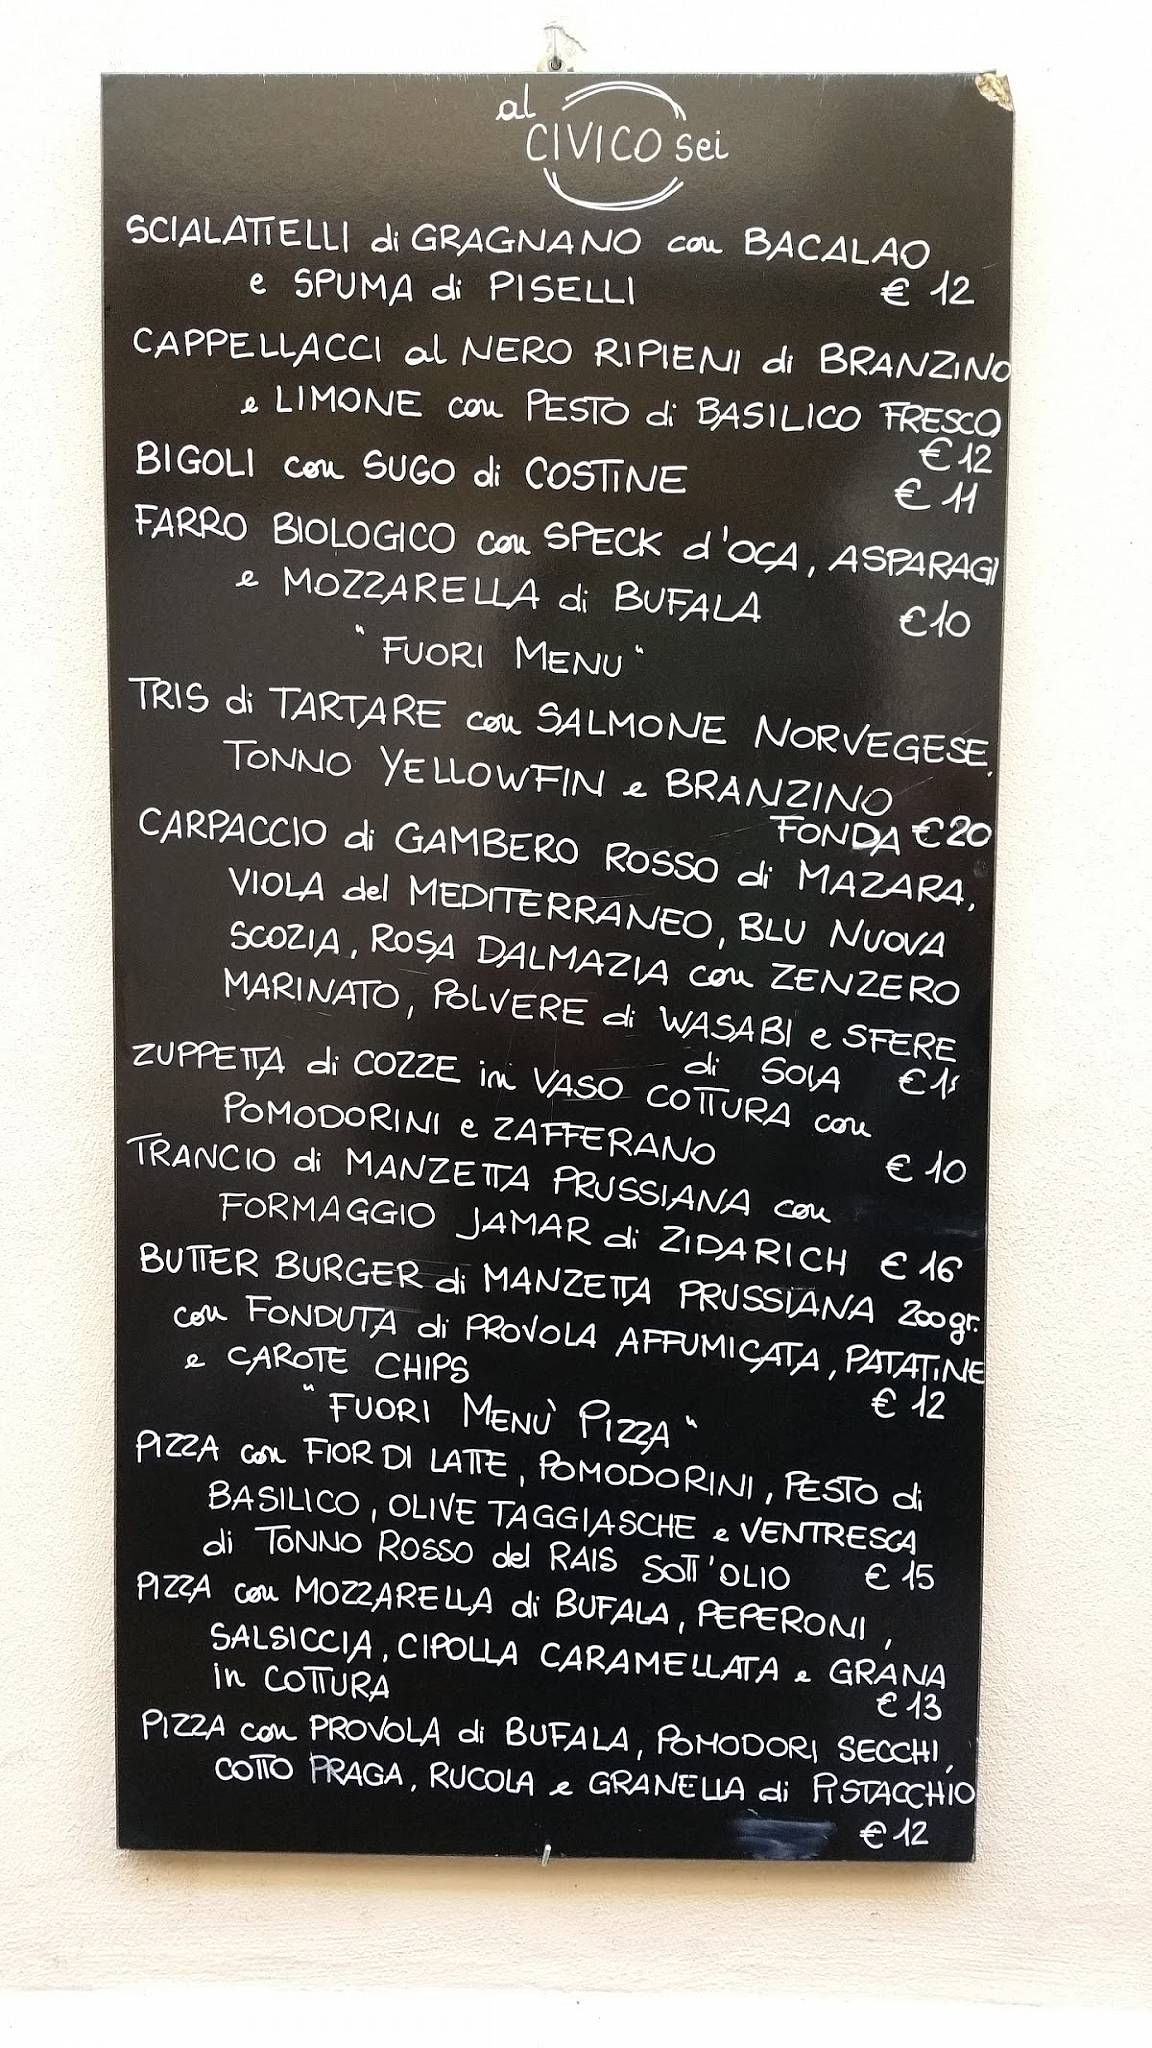 al
CIVICO sei
SCIALATIELLI di GRAGNANO con BACALAO
e SPUMA di PISELLI € 12
CAPPELLACCI al NERO RIPIENI di BRANZINO
e LIMONE con PESTO di BASILICO FRESCO
€ 12
BIGOLI con SUGO di COSTINE € 11
FARRO BIOLOGICO con SPECK d'OCA, ASPARAGI
e MOZZARELLA di BUFALA € 10
"FUORI MENU"
TRIS di TARTARE con SALMONE NORVEGESE,
TONNO YELLOWFIN e BRANZINO
FONDA € 20
CARPACCIO di GAMBERO ROSSO di MAZARA,
VIOLA del MEDITERRANEO, BLU NUOVA
SCOZIA, ROSA DALMAZIA con ZENZERO
MARINATO, POLVERE di WASABI e SFERE
di SOIA €
ZUPPETTA di COZZE in VASO COTTURA con
POMODORINI e ZAFFERANO € 10
TRANCIO di MANZETTA PRUSSIANA con
FORMAGGIO JAMAR di ZIDARICH € 16
BUTTER BURGER di MANZETTA PRUSSIANA 200gr.
con FONDUTA di PROVOLA AFFUMICATA, PATATINE
e CAROTE CHIPS € 12
"FUORI MENÙ PIZZA"
PIZZA con FIOR DI LATTE, POMODORINI, PESTO di
BASILICO, OLIVE TAGGIASCHE e VENTRESCA
di TONNO ROSSO del RAIS SOTT'OLIO € 15
PIZZA con MOZZARELLA di BUFALA, PEPERONI,
SALSICCIA, CIPOLLA CARAMELLATA e GRANA
in COTTURA € 13
PIZZA con PROVOLA di BUFALA, POMODORI SECCHI,
COTTO PRAGA, RUCOLA e GRANELLA di PISTACCHIO
€ 12